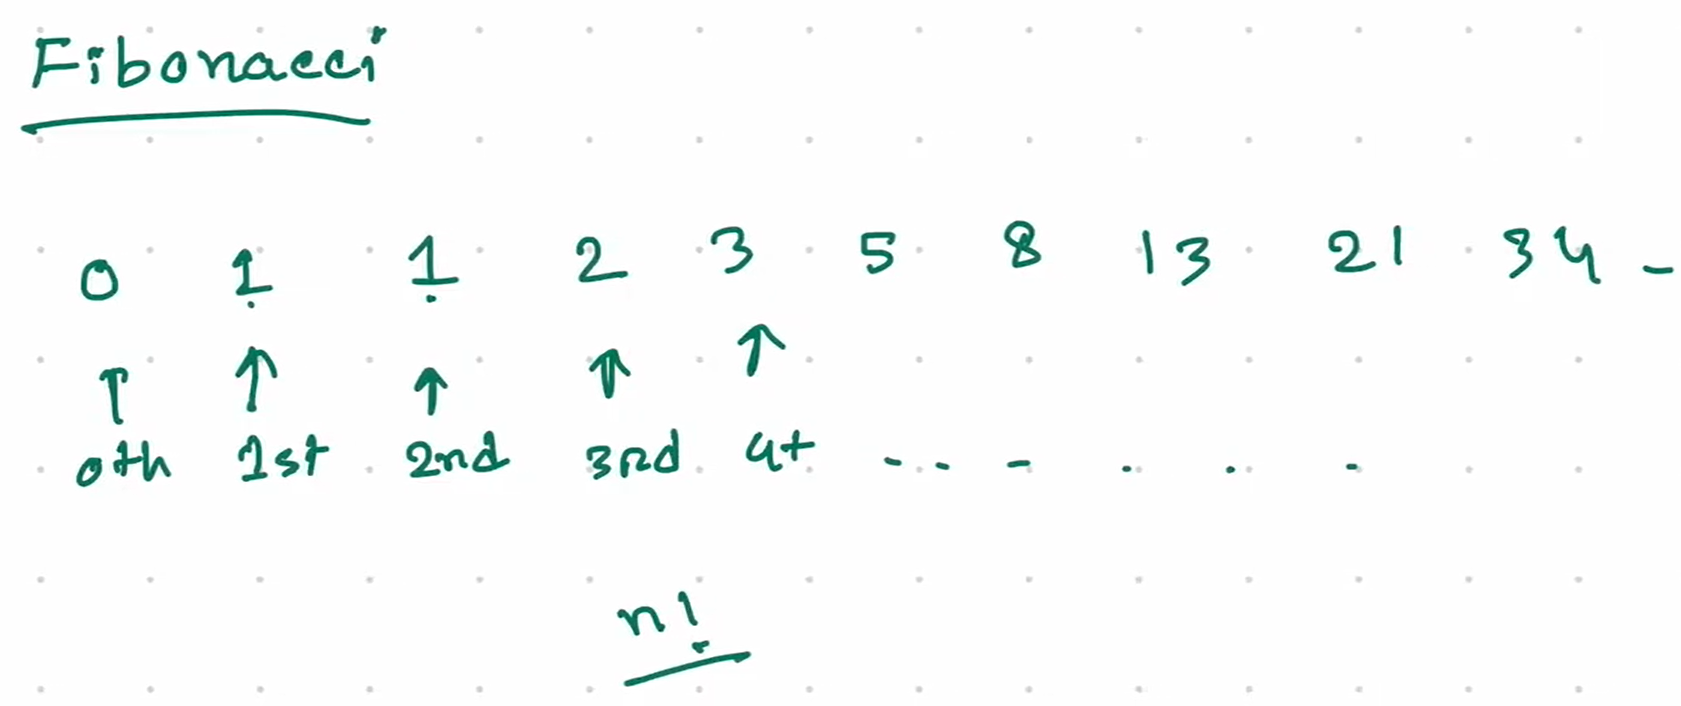 Fibonacci
0 1 1 2 3 5 8 13 21 34 -
0th 1st 2nd 3rd 4t -- - . . .
n!